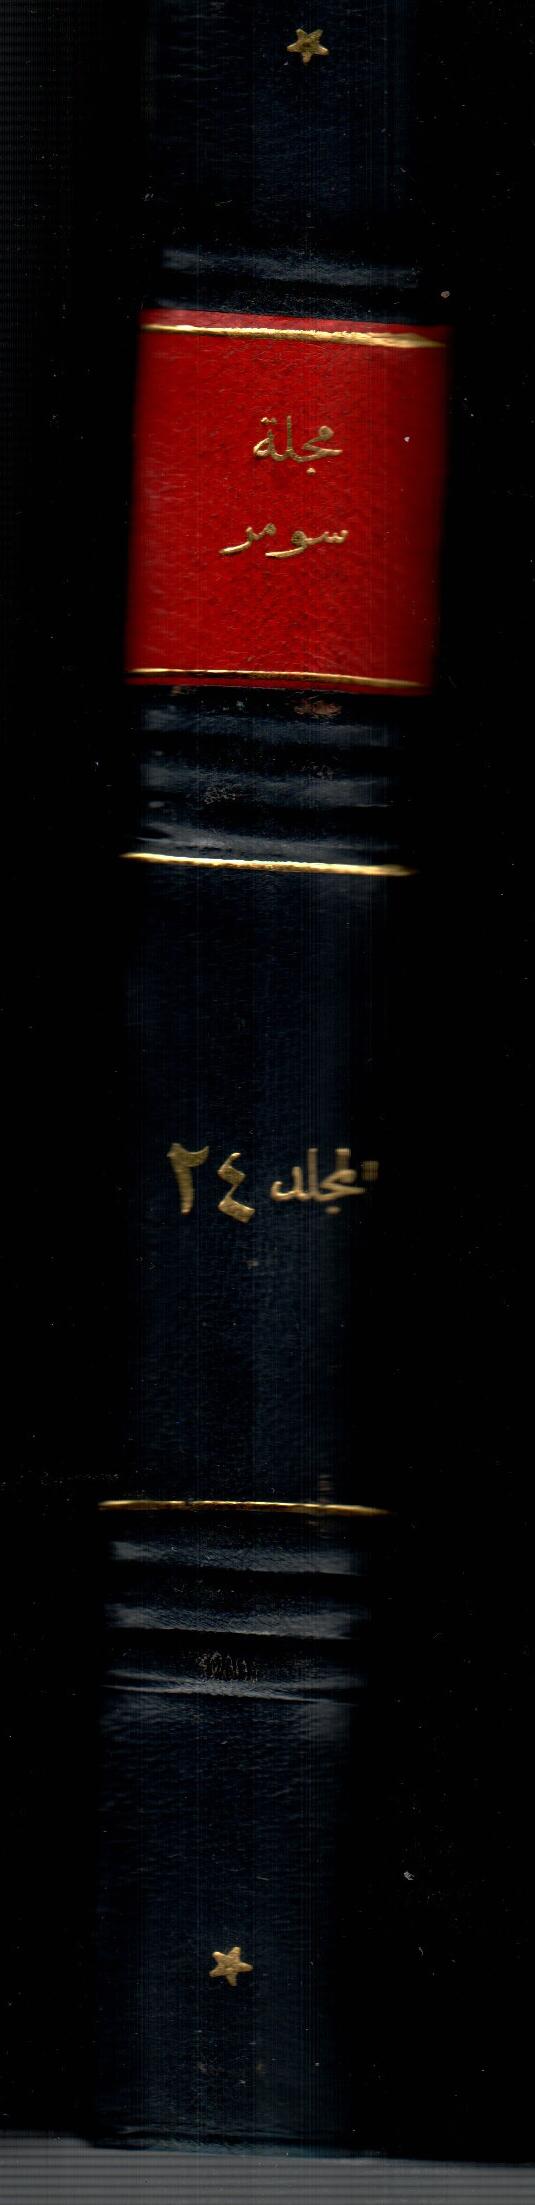 مجلة
سومر
المجلد ٢٤